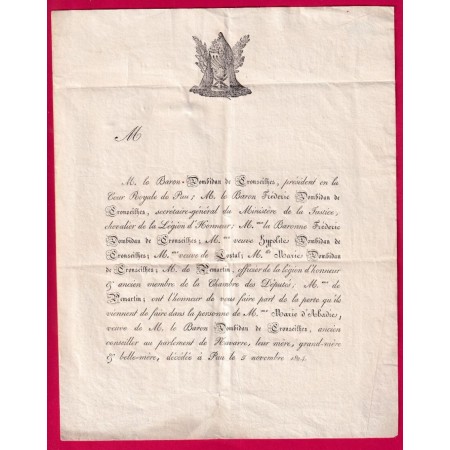 M
M. le Baron Dombidau de Crouseilhes, président en la
Cour Royale de Pau; M. le Baron Frédéric Dombidau de
Crouseilhes, secrétaire-général du Ministère de la Justice,
chevalier de la Légion d'Honneur; M.me la Baronne Frédéric
Dombidau de Crouseilhes; M.me veuve Hypolite Dombidau de
Crouseilhes; M.me veuve de Castal; M.lle Maries Dombidau
de Crouseilhes; M. de Nemartin, officier de la légion d'honneur
& ancien membre de la Chambre des Députés; M.me de
Nemartin; ont l'honneur de vous faire part de la perte qu'ils
viennent de faire dans la personne de M.me Marie d'Abadie,
veuve de M. le Baron Dombidau de Crouseilhes, ancien
conseiller au parlement de Navarre, leur mère, grand-mère
& belle-mère, décédée à Pau le 5 novembre